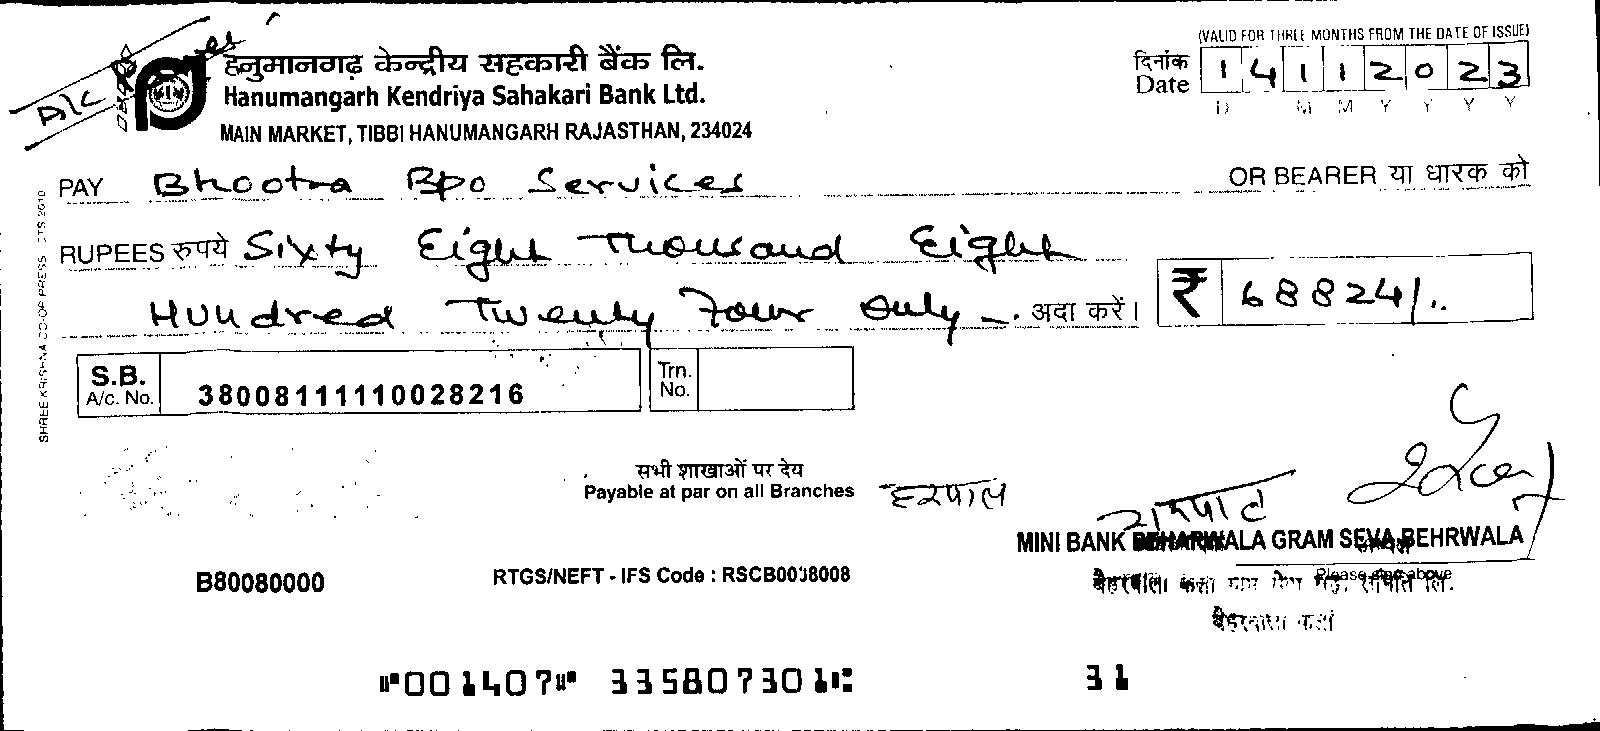 A/c Payee
हनुमानगढ़ केन्द्रीय सहकारी बैंक लि.
Hanumangarh Kendriya Sahakari Bank Ltd.
MAIN MARKET, TIBBI HANUMANGARH RAJASTHAN, 234024
(VALID FOR THREE MONTHS FROM THE DATE OF ISSUE)
दिनांक Date 14112023
D M M Y Y Y Y
PAY Bhootra Bpo Services OR BEARER या धारक को
RUPEES रुपये Sixty Eight Thousand Eight
Hundred Twenty Four Only अदा करें। ₹ 68824/.
S.B. A/c. No. 38008111110028216 Trn. No.
SHREE KRISHNA CO-OP PRESS CTS 2010
सभी शाखाओं पर देय
Payable at par on all Branches
हरपाल
MINI BANK BEHARWALA GRAM SEVA BEHRWALA
B80080000 RTGS/NEFT - IFS Code : RSCB0038008 Please sign above
बेहरवाला कला
"001407" 335807301 31